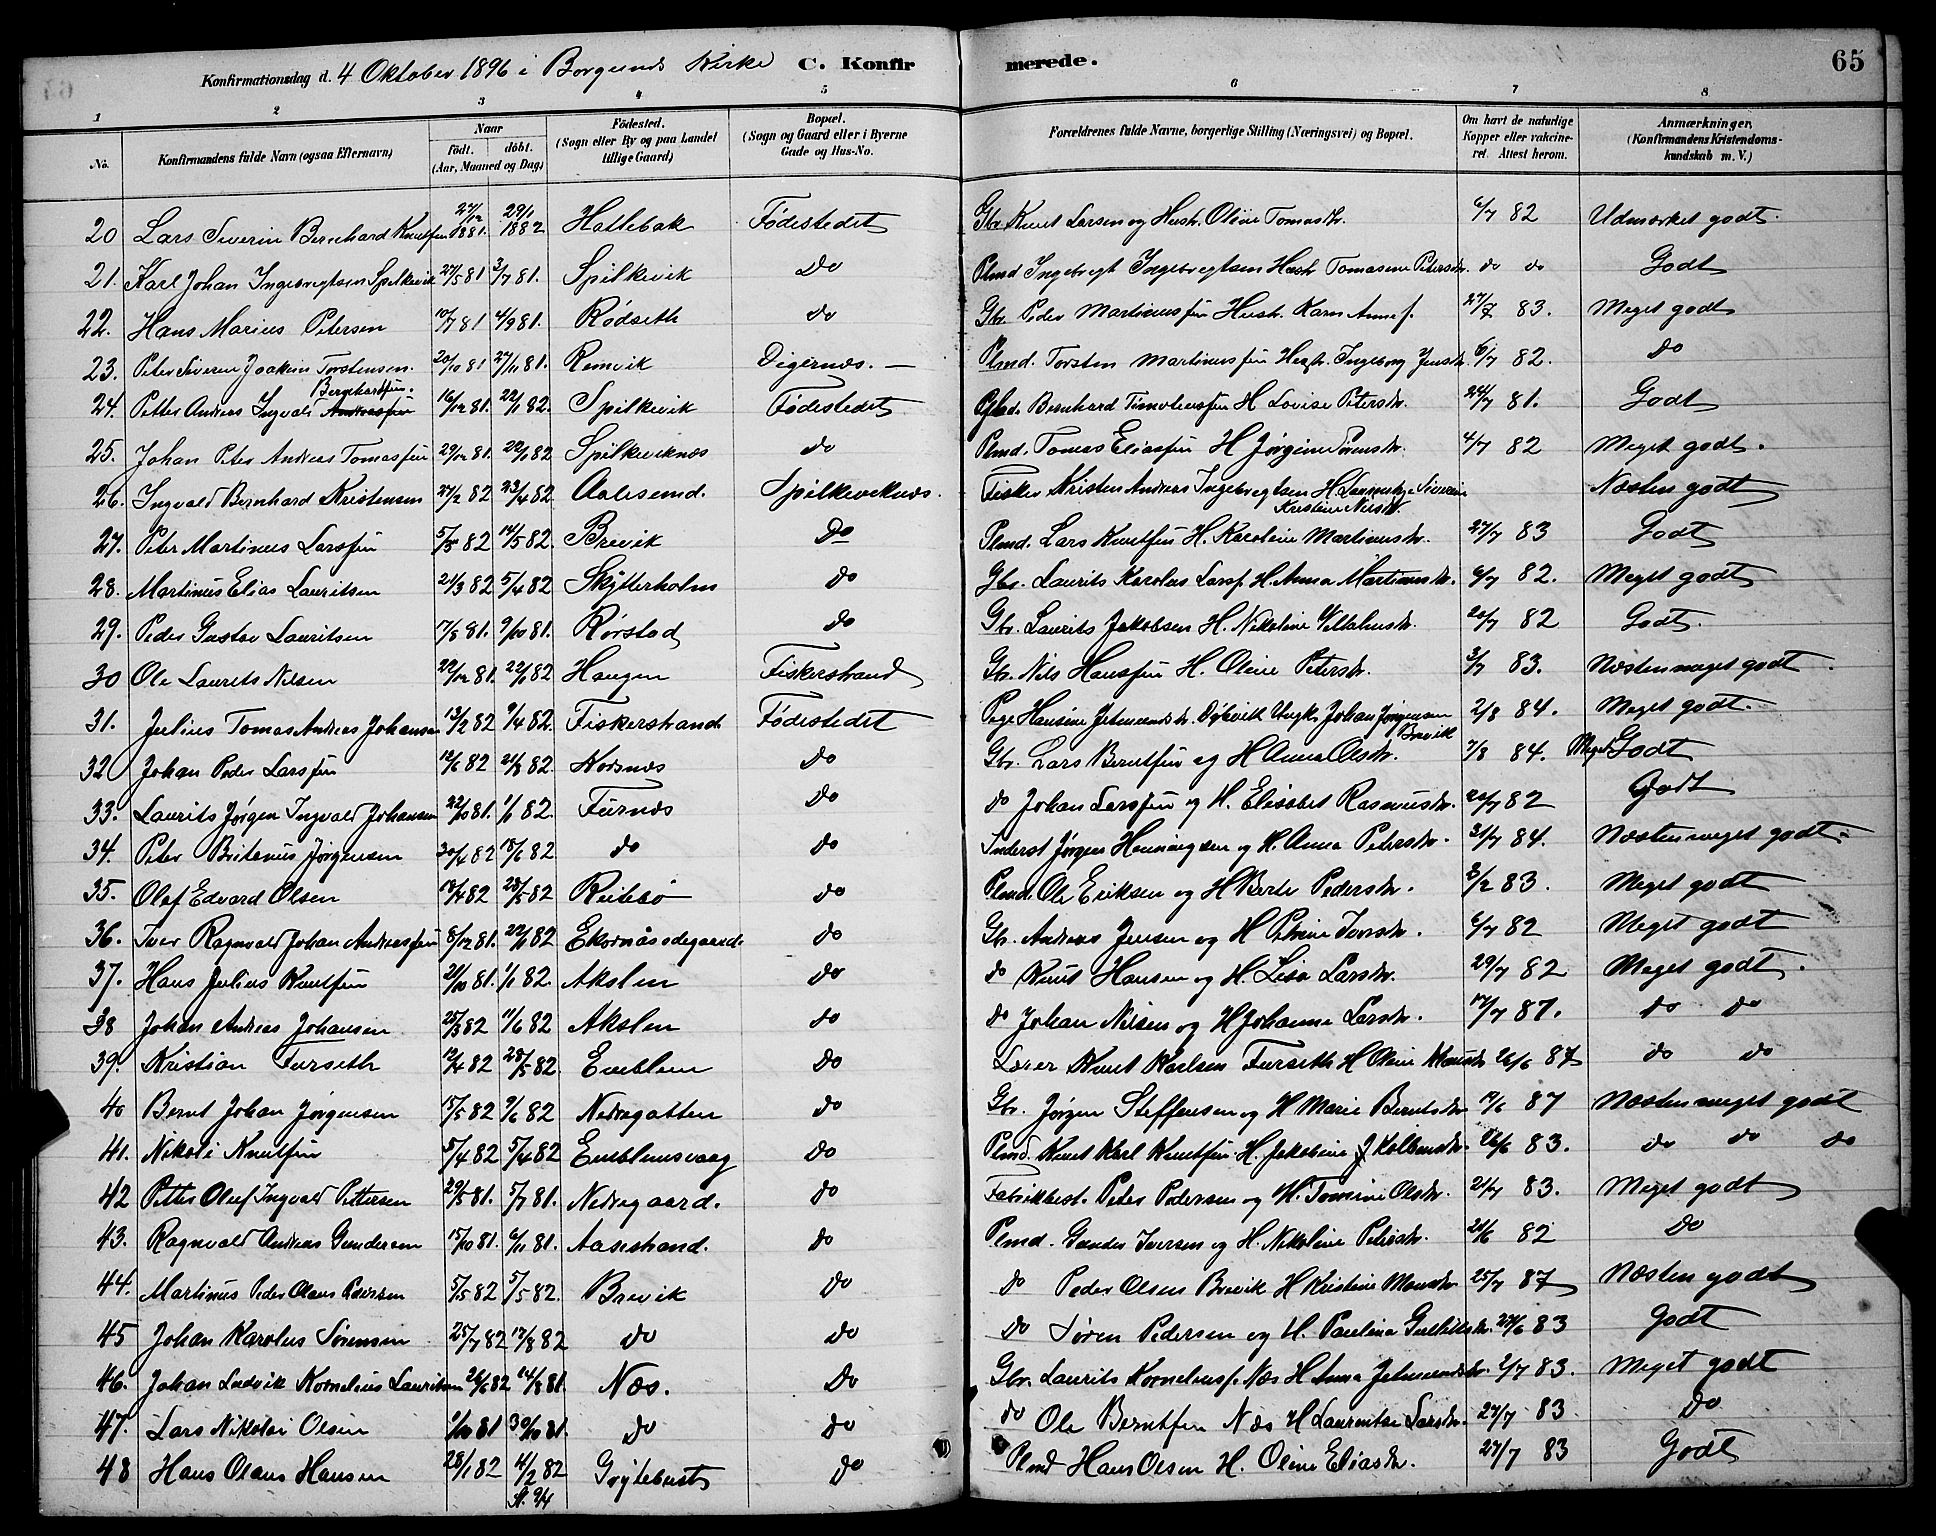 Konfirmationsdag d. 4 Oktober 1896 i Borgunds Kirke C. Konfirmerede. 65
1 2 3 4 5 6 7 8
No. Konfirmandens fulde Navn (ogsaa Efternavn) Naar födt. döbt. (Aar, Maaned og Dag) Födested. (Sogn eller By og paa Landet tillige Gaard) Bopæl. (Sogn og Gaard eller i Byerne Gade og Hus-No. Forældrenes fulde Navne, borgerlige Stilling (Næringsvei) og Bopæl. Om havt de naturlige Kopper eller vakcineret. Attest herom. Anmærkninger, (Konfirmandens Kristendomskundskab m. V.)
20 Lars Severin Bernhard Knutsen 27/12 1881. 29/1 1882 Hatlebak Fødestedet Gbr. Knut Larsen og Hustr. Oline Tomasdr. 6/7 82 Udmærket godt.
21. Karl Johan Ingebregtsen Spilkevik 27/5 81 3/7 81. Spilkevik Do Plmd Ingebregt Ingebregtsen Hustr Tomasine Petersdr. do do Godt
22. Hans Marius Petersen 10/7 81 4/9 81. Rødseth do Gbr. Peder Martinussen Hustr. Karn Annef. 27/7 83. Meget godt
23. Peter Severin Joakim Torstensen. 20/10 81 27/11 81. Remvik Digernæs. — Plmd. Torsten Martinussen Hustr. Ingeborg Jensdr. 6/7 82. do
24. Petter Andreas Ingvald Bernhardsen. 16/12 81. 22/1 82. Spilkevik Fødestedet Plmd. Bernhard Timoteussen H Lovise Petersdr. 24/7 81. Godt
25. Johan Peter Andreas Tomassen 29/12 81. 22/1 82 Spilkeviknæs do Plmd. Tomas Eliassen H Jørgine Sørensdr. 4/7 82 Meget godt.
26. Ingvald Bernhard Kristensen 27/2 82 23/4 82. Aalesund. Spilkeviknæs. Fisker Kristen Andreas Ingebregtsen H. Severine Kristine Nilsdr. Næsten godt
27. Peter Martinus Larssen 5/3 82 14/5 82. Brevik Do Plmd. Lars Knutsen H. Karoline Martinusdr. 27/7 83 Godt
28. Martinus Elias Lauritsen 21/3 82 5/4 82 Skytterholm do Gbr. Laurits Karolus Larsf. H. Anna Martinusdr. 6/7 82. Meget godt
29. Peder Gustav Lauritsen 7/8 81. 9/10 81. Rørstad do Gbr. Laurits Jakobsen H. Nikoline Villahmsdr. 20/7 82 Godt.
30 Ole Laurits Nilsen 22/12 81. 22/1 82 Haugen Fiskerstrand Gbr. Nils Hanssen H. Oline Petersdr. 3/7 83. Næsten meget godt
31. Julius Tomas Andreas Johansen 13/2 82 9/4 82. Fiskerstrand Fødestedet Pige Hansine Jetmundsdr. Dybvik Ungk. Johan Jørgensen Brevik 2/8 84. Meget godt.
32 Johan Peder Larssen 12/6 82 21/8 82. Korsnæs Do Gbr. Lars Berntsen og H Anna Olsdr. 7/8 84. Meget Godt
33. Laurits Jørgen Ingvald Johansen 22/10 81. 1/1 82. Furnæs Do do Johan Larssen og H. Elisabet Rasmusdr. 20/7 82 Godt
34. Peter Britenius Jørgensen 30/4 82 18/6 82 do do Inderst Jørgen Henningsen og H. Anna Petersdr. 31/7 84. Næsten meget godt.
35. Olaf Edvard Olsen 18/4 82 28/5 82 Reitebø do Plmd. Ole Eriksen og H Berte Pedersdr. 3/2 83. Meget godt
36. Iver Ragnvald Johan Andreassen 8/12 81. 22/1 82 Ekornåsødegaard. do Gbr. Andreas Jensen og H Petrine Iversdr. 6/7 82 Meget godt
37. Hans Julius Knutsen 21/10 81. 1/1 82. Akslen do do Knut Hansen og H. Lisa Larsdr. 29/7 82 Meget godt.
38 Johan Andreas Johansen 25/3 82 11/6 82 Akslen do do Johan Nilsen og H Johanne Larsdr. 17/7 87. do do
39. Kristian Furseth 12/4 82 28/5 82. Emblem do Lærer Knut Karlsen Furseth H Oline Knutsdr 26/6 87 do do
40 Bernt Johan Jørgensen 15/5 82 9/6 82 Nedregotten do Gbr. Jørgen Steffensen og H Marie Berntsdr 19/6 87 Næsten meget godt
41. Nikolai Knutsen 5/4 82 5/4 82 Emblemsvaag do Plmd. Knut Karl Knutsen H. Jakobine J Kolbensdr. 26/6 83. do do do
42 Petter Oluf Ingvald Pettersen 29/5 81. 5/7 81. Nedregaard. do Fabrikbest. Peter Pedersen og H. Tomine Olsdr. 21/7 83. Meget godt
43. Ragnvald Andreas Gundersen 15/10 81. 6/11 81. Aasestrand. do Plmd. Gunder Iversen og H. Nikoline Petersdr. 21/6 82 Do
44. Martinus Peder Olaus Pedersen 5/5 82 5/5 82. Brevik do do Peder Olsen Brevik H Kristine Monsdr 25/7 87 Næsten godt
45 Johan Karolus Sørensen 25/7 82 17/8 82 do do do Søren Pedersen og H. Pauline 27/6 83 Godt
46. Johan Ludvik Kornelius Lauritsen 26/6 82 14/8 81. Næs. Do Gbr. Laurits Kornelinsf. Næs H Anna Jetmundsdr. 2/7 83. Meget godt
47. Lars Nikolai Olsen 1/10 81 30/10 81. do do do Ole Berntsen Næs H Laurentse Larsdr. 27/7 83 Do
48 Hans Olaus Hansen 28/1 82 4/2 82 St. 9/4 Gøytebust do Plmd Hans Olsen H. Oline Eliasdr. 27/7 83 Godt